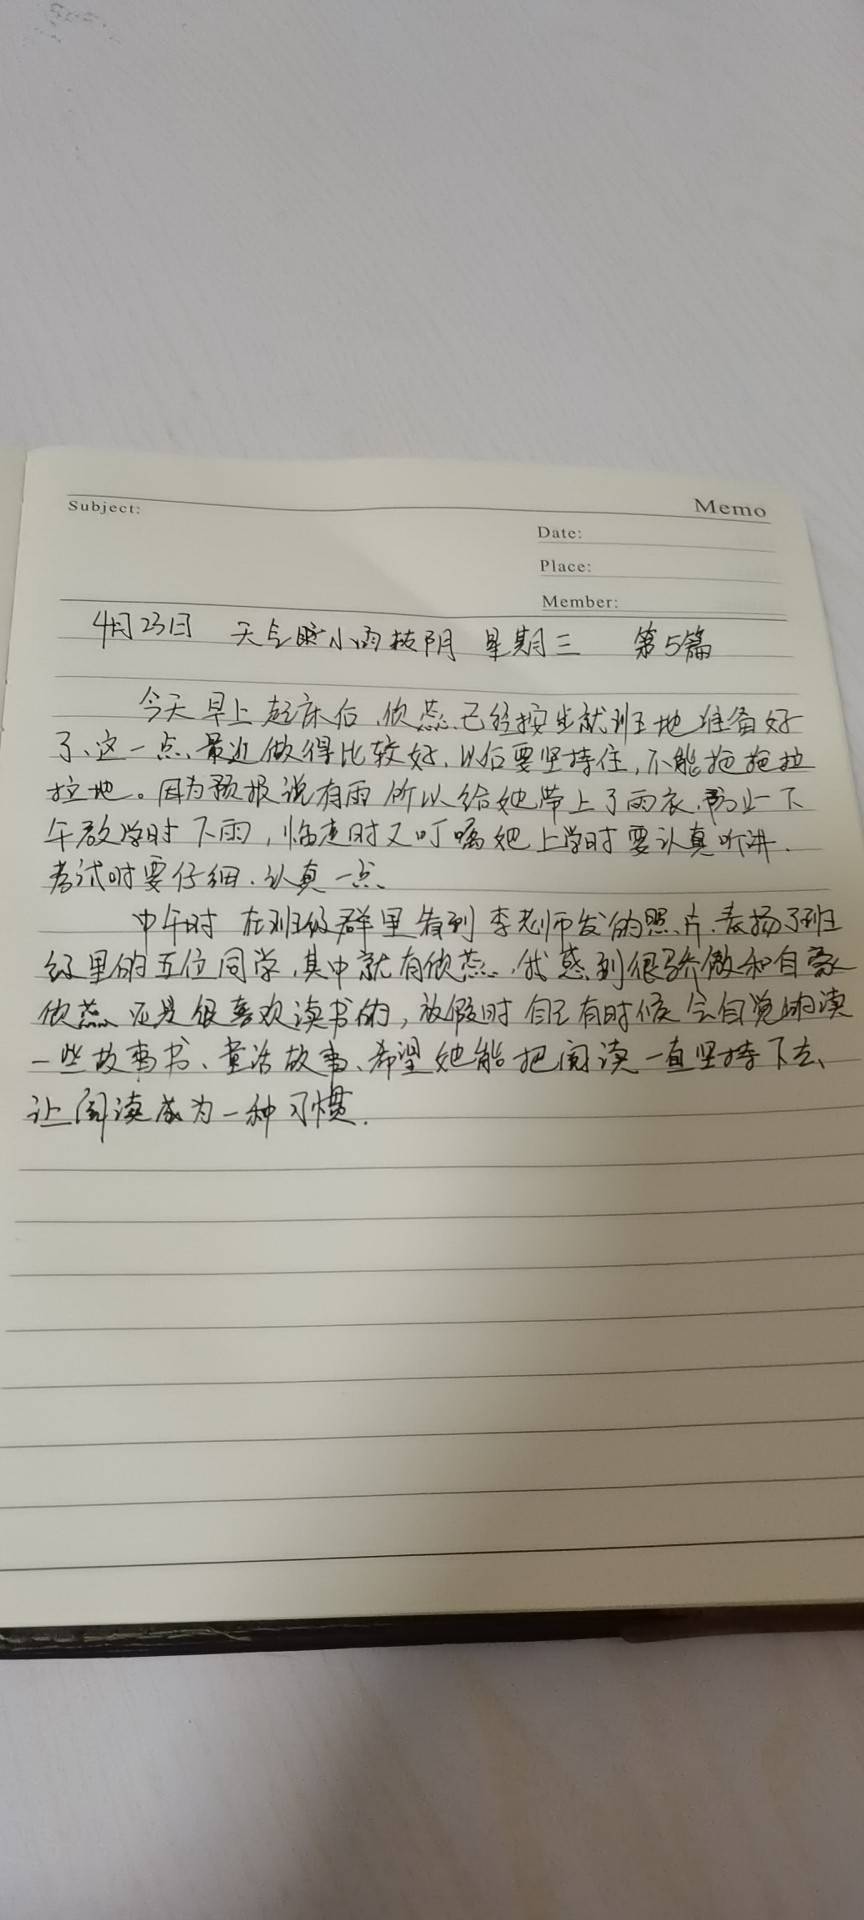 Subject:
Memo
Date:
Place:
Member:
4月23日 天气 小雨转阴 星期三 第5篇
今天早上起床后,欣蕊已经按步就班地准备好
了、这一点、最近做得比较好,以后要坚持住,不能拖拖拉
拉地。因为预报说有雨所以给她带上了雨衣,防止下
午放学时下雨,临走时又叮嘱她上学时要认真听讲.
考试时要仔细.认真一点、
中午时 在班级群里看到李老师发的照片.表扬了班
级里的五位同学,其中就有欣蕊.我感到很骄傲和自豪
欣蕊还是很喜欢读书的,放假时自己有时候会自觉的读
一些故事书、童话故事、希望她能把阅读一直坚持下去、
让阅读成为一种习惯.